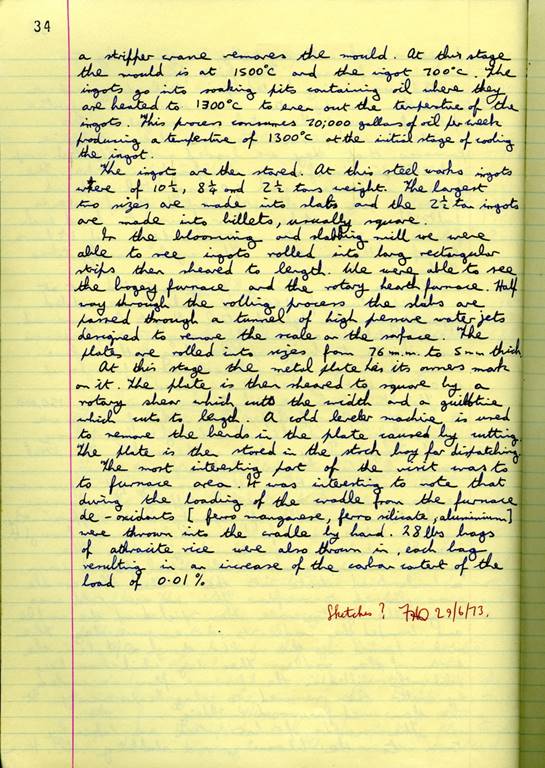 34
a stripper crane removes the mould. At this stage
the mould is at 1500°C and the ingot 700°C. The
ingots go into soaking pits containing oil where they
are heated to 1300°C to even out the temperture of the
ingots. This process consumes 70,000 gallons of oil per week
producing a temperture of 1300°C at the initial stage of cooling
the ingot.
The ingots are then stored. At this steel works ingots
where of 10½, 8¼ and 2½ tons weight. The largest
two sizes are made into slabs and the 2½ ton ingots
are made into billets, usually square.
In the blooming and slabbing mill we were
able to see ingots rolled into long rectangular
strips then sheared to length. We were able to see
the bogey furnace and the rotary hearth furnace. Half
way through the rolling process the slabs are
passed through a tunnel of high pressure water jets
designed to remove the scale on the surface. The
plates are rolled into sizes from 76 m.m. to 5mm thick
At this stage the metal plate has its owners mark
on it. The plate is then sheared to square by a
rotary shear which cuts the width and a guillotine
which cuts to length. A cold leveler machine is used
to remove the bends in the plate caused by cutting.
The plate is then stored in the stock bay for dispatching
The most interesting part of the visit was to
to furnace area. It was interesting to note that
during the loading of the cradle from the furnace
de-oxidants [ferro manganese, ferro silicate, aluminium]
were thrown into the cradle by hand. 28 lbs bags
of athracite rice were also thrown in, each bag
resulting in an increase of the carbon content of the
load of 0.01%
Sketches? 29/6/73.